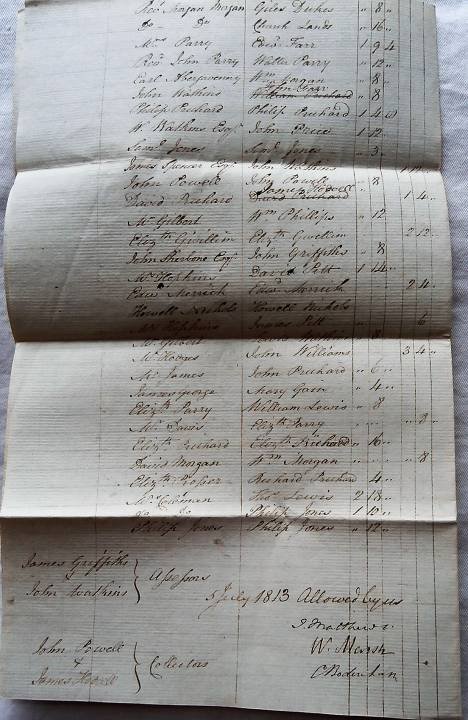 Revd Trajan Morgan Giles Dukes " 8 "
Do Do Church Lands " 16 "
Mrs Parry Edwd Farr 1 9 4
Revd John Parry Walter Parry " 12 "
Earl Abergavenny Wm Morgan " 8 "
John Watkins William Prichard " 8
Philip Prichard Philip Prichard 1 4
W. Watkins Esqr John Price 1 12
Saml Jones Saml Jones " 3 "
James Spencer Esqr John Watkins
John Powell John Powell " 8
James Howell
David Prichard David Prichard 1 4
Mr Gilbert Wm Phillips " 12
Elizth Gwillim Elizth Gwillim 2 12
John Sherborne Esqr John Griffiths " 8
Mrs Hopkins David Pitt 1 14
Edwd Merrick Edwd Merrick 2 4
Howell Nichols Howell Nichols
Mrs Hopkins James Pitt 6
Mr Gilbert 8
John Williams 3 4
Mr James John Prichard " 6 "
James George Mary Gain " 4 "
Elizth Parry William Lewis " 8
Mrs Davis Elizth Parry 8
Elizth Prichard Elizth Prichard " 16 "
Davis Morgan Wm Morgan 8
Elizth Prosser Richard Prichard 4
Mrs Coleman Thos Lewis 2 18
Do Do Philip Jones 1 10
Philip Jones Philip Jones " 12
James Griffiths
&
John Watkins
Assessors
5 July 1813 Allowed by us
W. Marsh
C Bodenham
John Powell
&
James Howell
Collectors